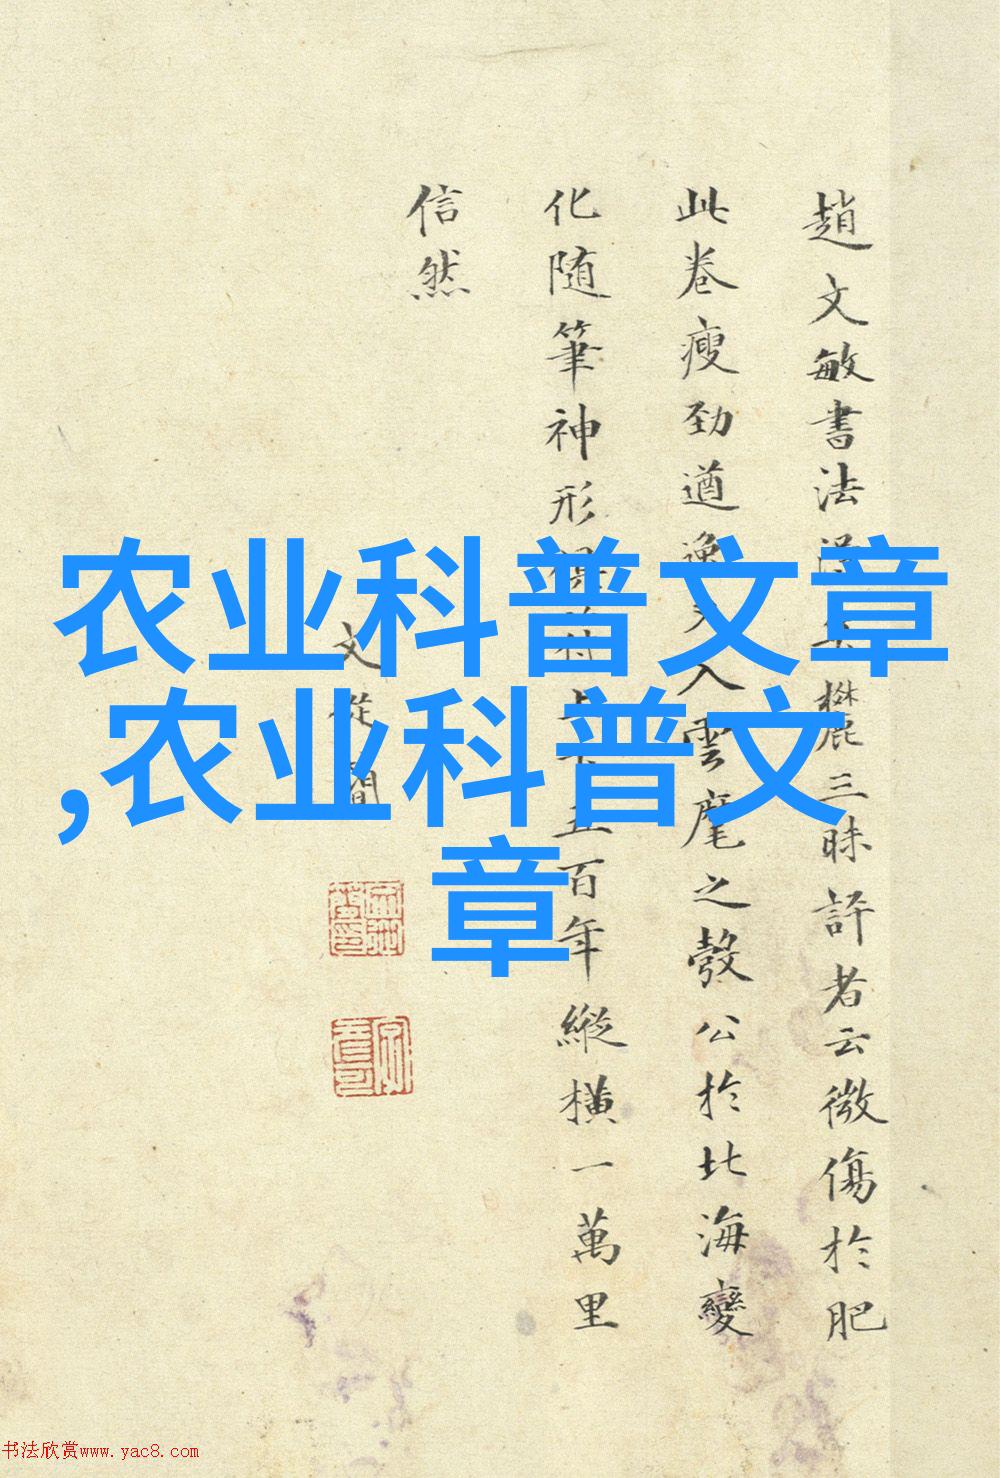 農业科普文章
,农业科普文
章
趙文敏書法三昧評者云微傷於肥
此卷瘦劲遒逸入雲麾之彀公於北海變
化随筆神形上下五百年縱橫一萬里
信然
文從簡
书法欣赏www.yac8.com